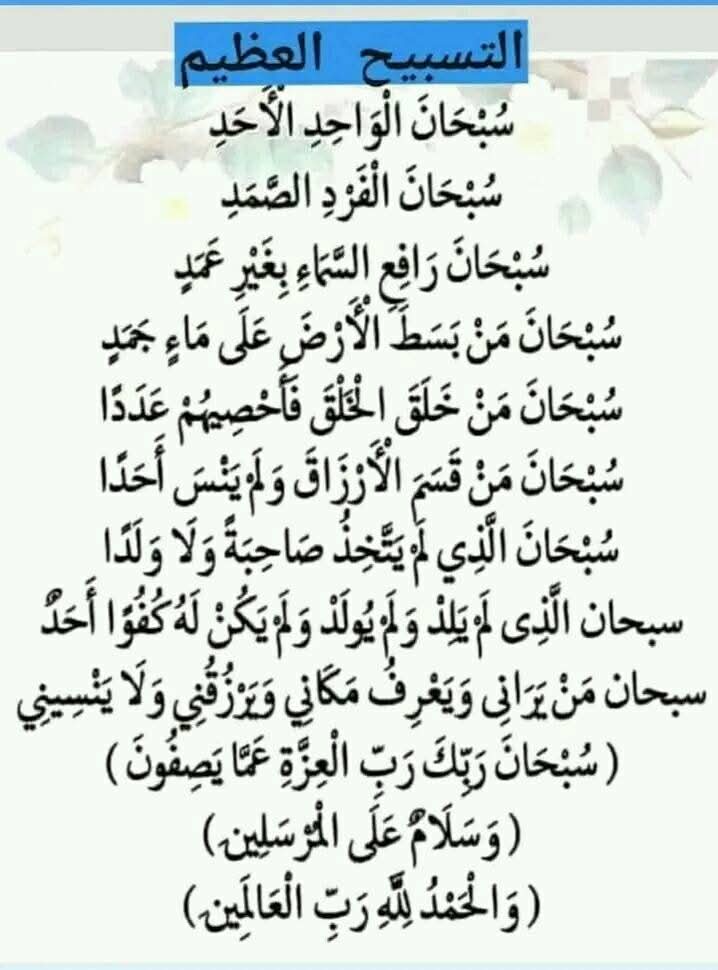 التسبيح العظيم
سُبْحَانَ الْوَاحِدِ الْأَحَدِ
سُبْحَانَ الْفَرْدِ الصَّمَدِ
سُبْحَانَ رَافِعِ السَّمَاءِ بِغَيْرِ عَمَدٍ
سُبْحَانَ مَنْ بَسَطَ الْأَرْضَ عَلَى مَاءٍ جَمَدٍ
سُبْحَانَ مَنْ خَلَقَ الْخَلْقَ فَأَحْصِيهُمْ عَدَدًا
سُبْحَانَ مَنْ قَسَمَ الْأَرْزَاقَ وَلَمْ يَنْسَ أَحَدًا
سُبْحَانَ الَّذِي لَمْ يَتَّخِذُ صَاحِبَةً وَلَا وَلَدًا
سبحان الَّذِى لَمْ يَلِدْ وَلَمْ يُولَدْ وَلَمْ يَكُنْ لَهُ كُفُوًا أَحَدٌ
سبحان مَنْ يَرَانِى وَيَعْرِفُ مَكَانِي وَيَرْزُقُنِي وَلَا يَنْسِينِي
( سُبْحَانَ رَبِّكَ رَبِّ الْعِزَّةِ عَمَّا يَصِفُونَ )
( وَسَلَامٌ عَلَى الْمُرْسَلِينَ )
( وَالْحَمْدُ لِلَّهِ رَبِّ الْعَالَمِينَ )